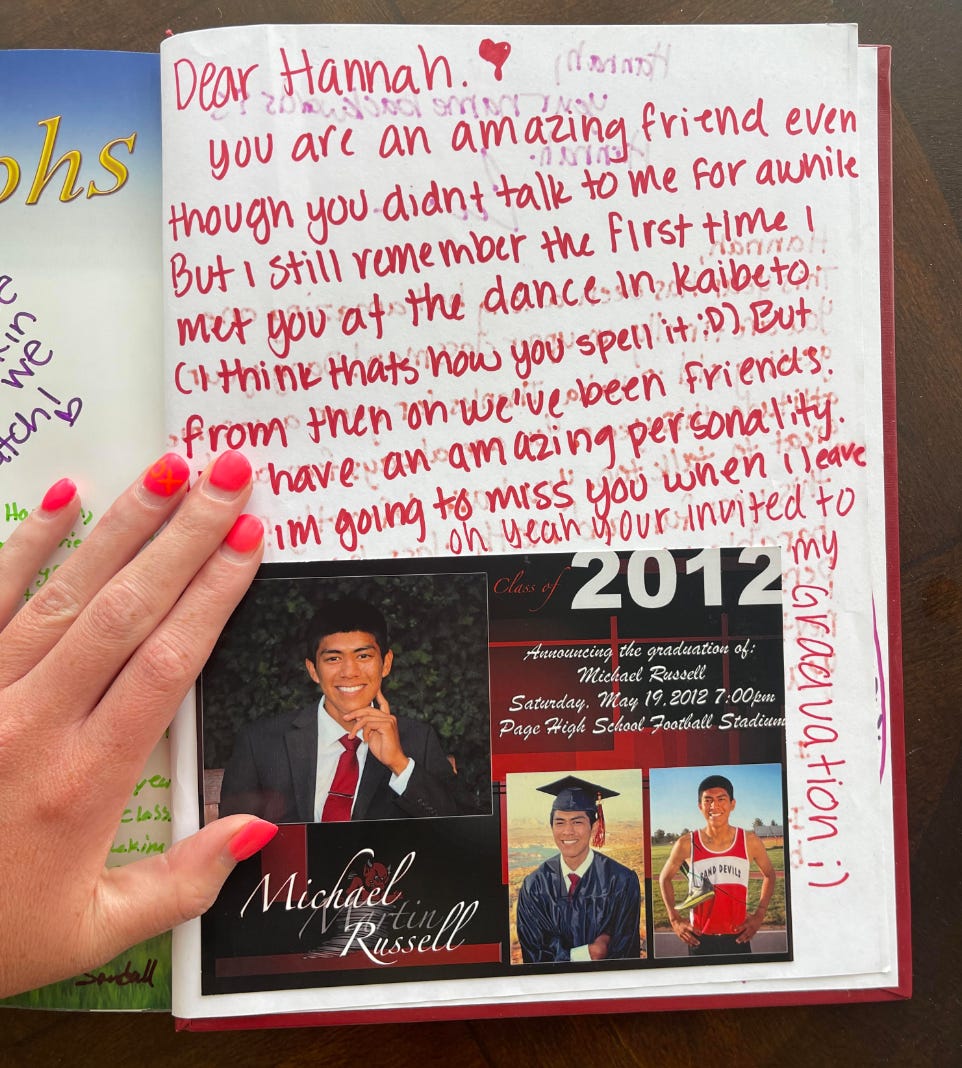 ohs
kin
we
atch!
Sandall
year
class
Dear Hannah.
you are an amazing friend even
though you didnt talk to me for awhile
But i still remember the first time i
met you at the dance in Kaibeto.
(i think thats how you spell it :D). But
from then on we've been friends.
have an amazing personality.
im going to miss you when i leave
oh yeah, your invited to
my Graduation :)
Class of 2012
Announcing the graduation of:
Michael Russell
Saturday, May 19,2012 7:00pm
Page High School Football Stadium
SAND DEVILS
Michael
Martin
Russell